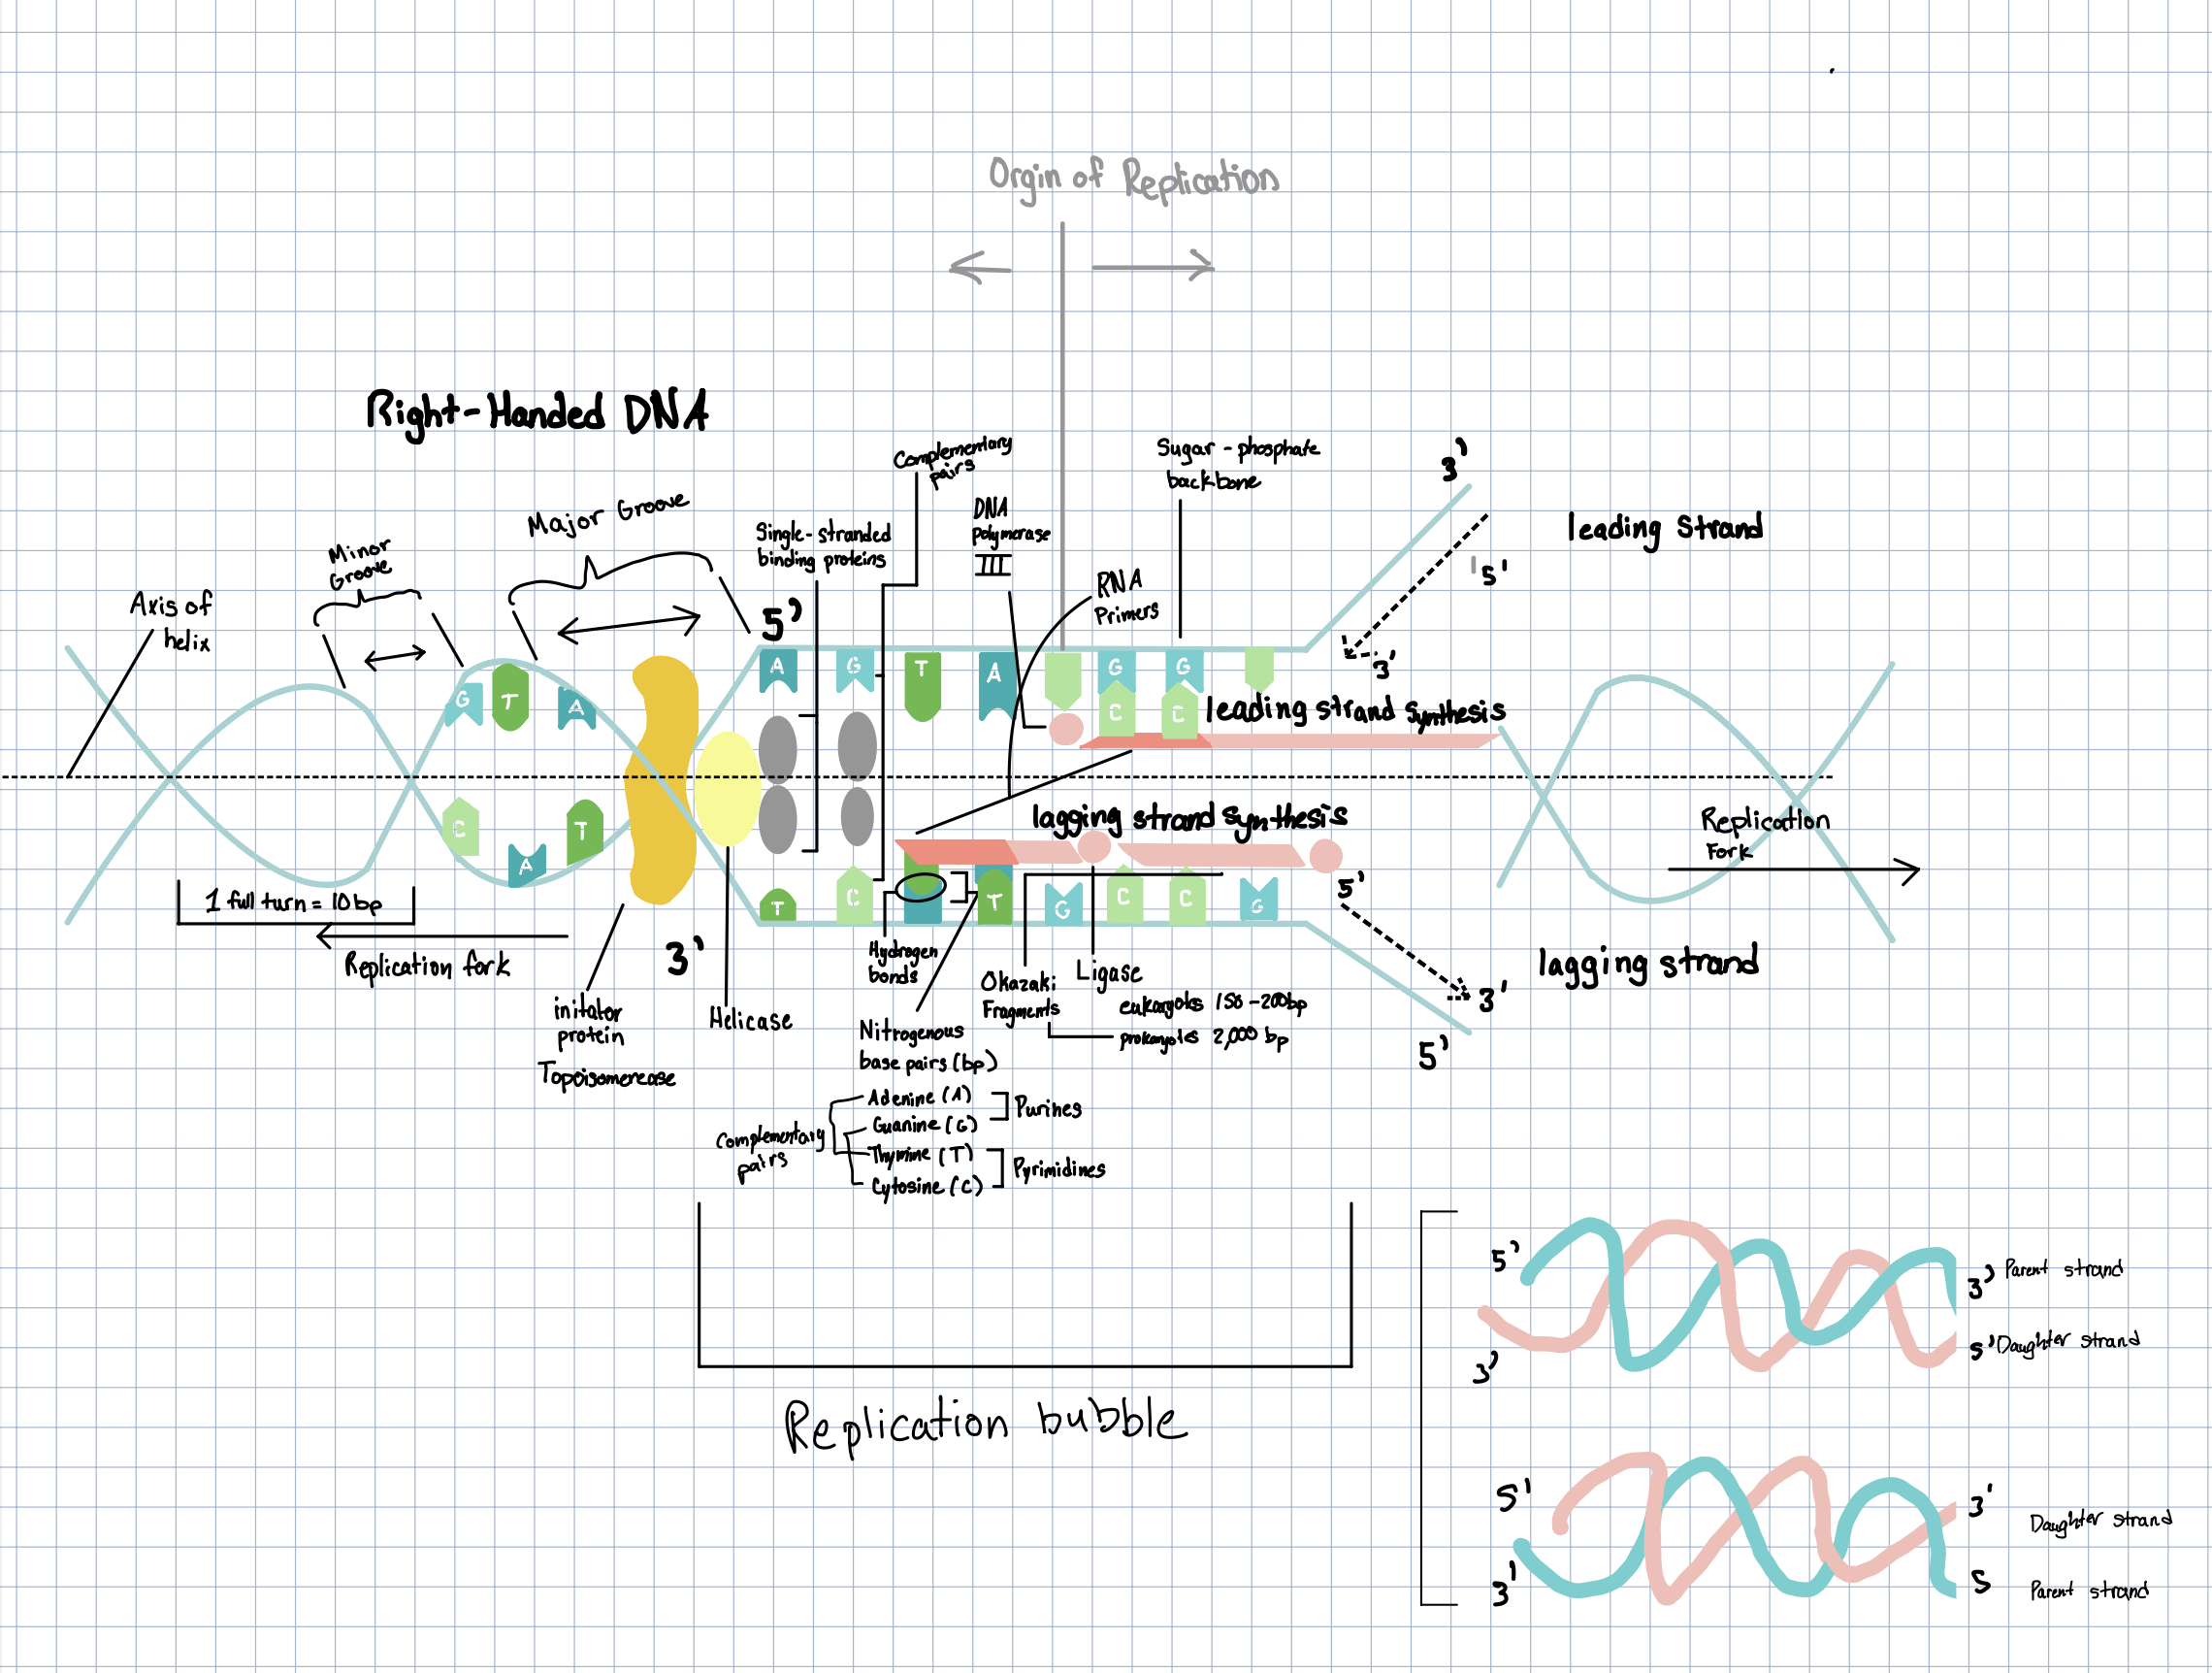 Orgin of Replication
Right-Handed DNA
Complementary
pairs
Sugar-phosphate
backbone
3'
Major Groove
DNA
polymerase
III
Single-stranded
binding proteins
leading Strand
Minor
Groove
5'
RNA
Primers
Axis of
helix
5'
3'
A
G
T
A
G
G
G
T
A
C
C
leading strand synthesis
lagging strand synthesis
Replication
Fork
C
A
T
T
C
T
G
C
C
G
5'
1 full turn = 10 bp
Replication fork
3'
Hydrogen
bonds
lagging strand
Okazaki
Fragments
Ligase
3'
eukaryotes 150-200bp
prokaryotes 2,000 bp
5'
initator
protein
Topoisomerease
Helicase
Nitrogenous
base pairs (bp)
Complementary
pairs
Adenine (A)
Guanine (G)
Purines
Thymine (T)
Cytosine (C)
Pyrimidines
Replication bubble
5'
3' Parent strand
5' Daughter strand
3'
5'
3'
Daughter strand
3'
5
Parent strand